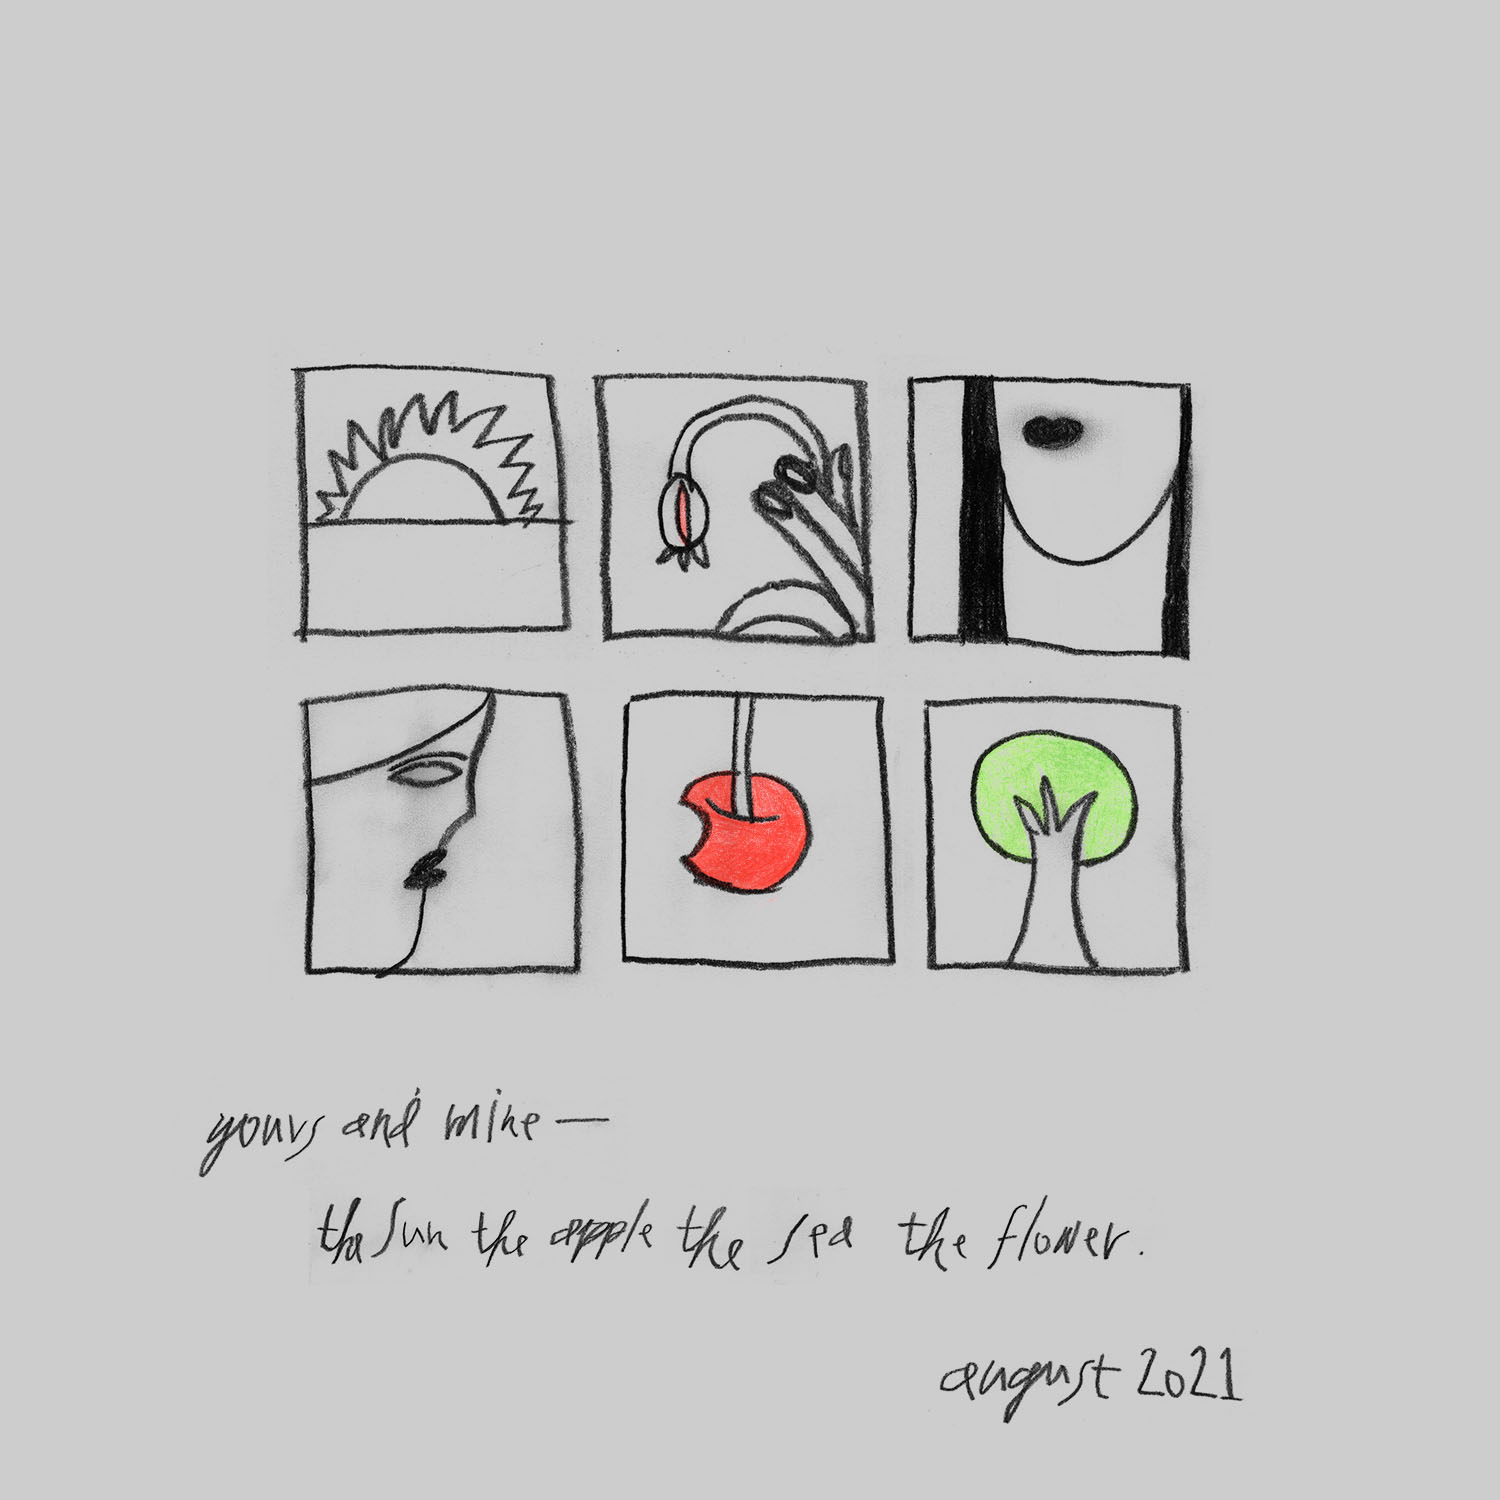 yours and mine —
the sun the apple the sea the flower.
august 2021